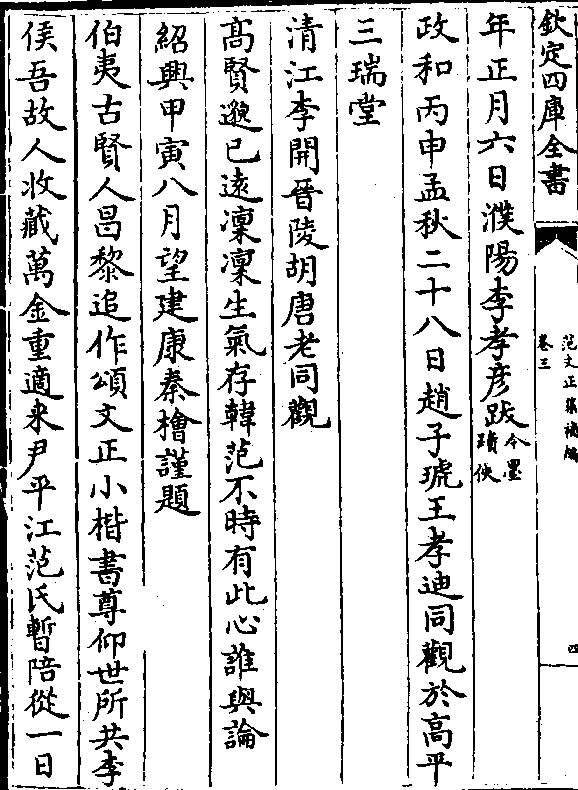 欽定四庫全書
范文正集補編
卷三
四
年正月六日濮陽李孝彦跋今墨蹟佚
政和丙申孟秋二十八日趙子琥王孝迪同觀於高平
三瑞堂
清江李開晉陵胡唐老同觀
高賢邈已遠凜凜生氣存韓范不時有此心誰與論
紹興甲寅八月望建康秦檜謹題
伯夷古賢人昌黎追作頌文正小楷書尊仰世所共李
侯吾故人收藏萬金重適来尹平江范氏暫陪從一日